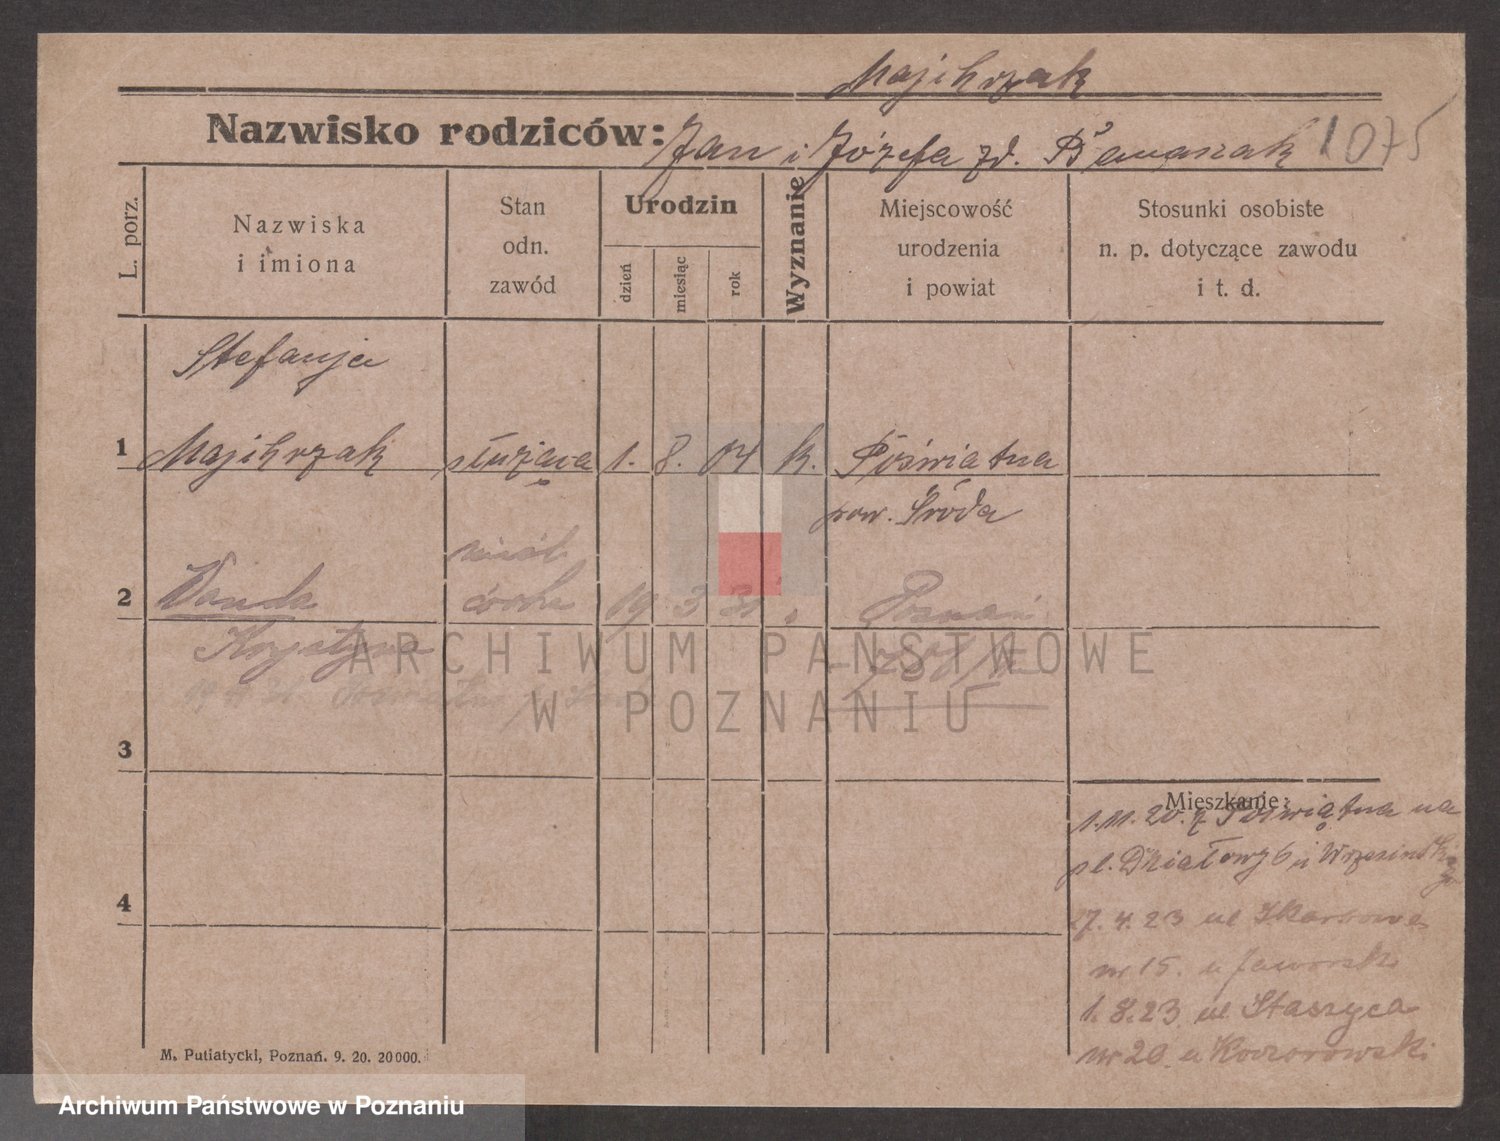 Majchrzak
Nazwisko rodziców: Jan i Józefa zd. 1075
L. porz.
Nazwiska
i imiona
Stan
odn.
zawód
Urodzin
dzień
miesiąc
rok
Wyznanie
Miejscowość
urodzenia
i powiat
Stosunki osobiste
n. p. dotyczące zawodu
i t. d.
Stefanja
1 Majchrzak służąca 1. 8. 04 k. Pöświatna
pow. Środa
nieśl
2 Wanda córka 19 3 31 Poznań
Krystyna
19 31
3
Mieszkanie:
1.11.20. z Pöświątna na
pl. Działowy 6 u
4
27.4.23 ul Skarbowa
nr 15. u Jaworski
1.8.23 ul Staszyca
nr 20. u Koczorowski
M. Putiatycki, Poznań. 9. 20. 20000.
ARCHIWUM PAŃSTWOWE
W POZNANIU
Archiwum Państwowe w Poznaniu